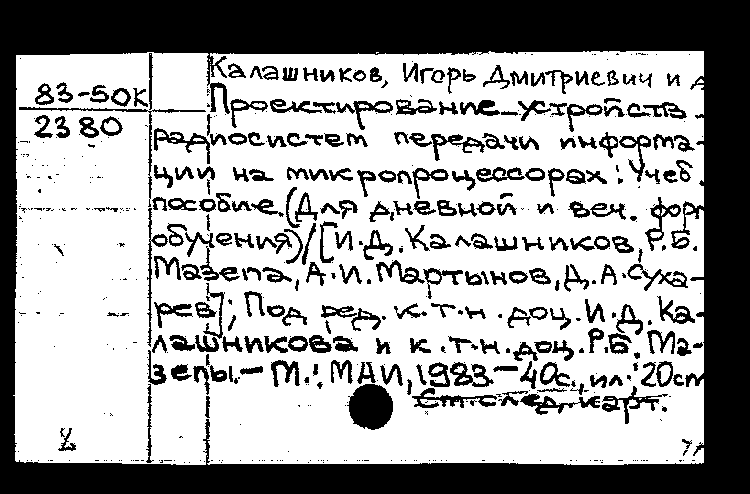 Калашников, Игорь Дмитриевич и д
83-50К
2380
Проектирование устройств
радиосистем передачи информа-
ции на микропроцессорах: Учеб.
пособие. (Для дневной и веч. фор
обучения)/[И.Д. Калашников, Р.Б.
Мазепа, А.И. Мартынов, Д.А. Суха-
рев]; Под ред. к.т.н. доц. И.Д. Ка-
лашникова и к.т.н. доц. Р.Б. Ма-
зепы.— М.: МАИ, 1983.— 40с., ил.; 20см
См. след. карт.